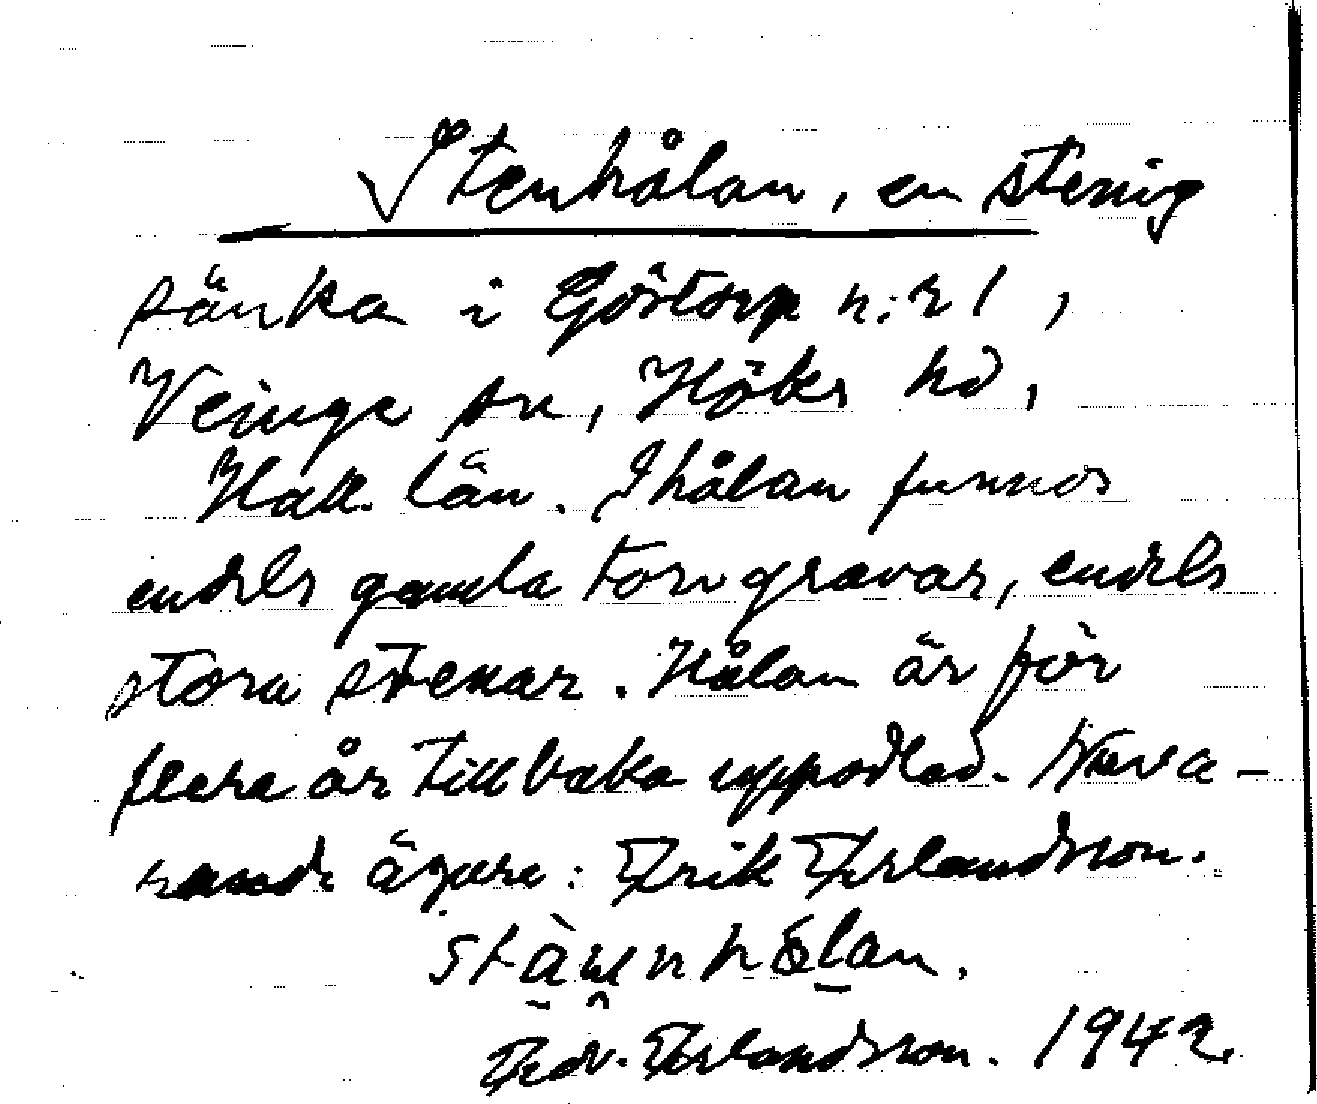 Stenhålan, en stenig
sänka i Göstorp n:r 1,
Veinge sn, Höks hd,
Hall. län. I hålan funnos
endels gamla torvgravar, endels
stora stenar. Hålan är för
flera år tillbaka uppodlad. Nuva-
rande ägare: Erik Erlandsson.
stàinhålan.
Edv. Erlandsson. 1942.